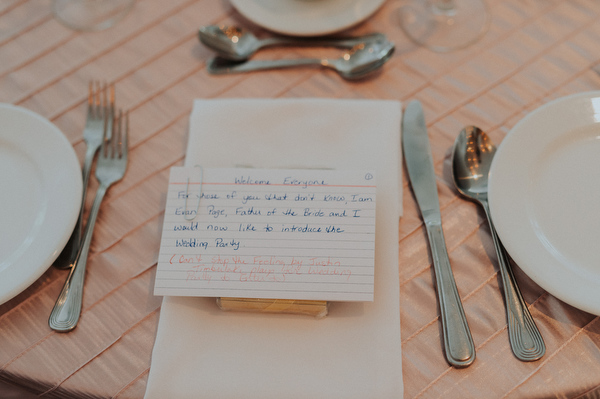 ①
Welcome Everyone
For whose of you that don't know, I am
Evan Page, Father of the Bride and I
would now like to introduce the
Wedding Party
(Don't stop the Feeling by Justin
Timberlake plays